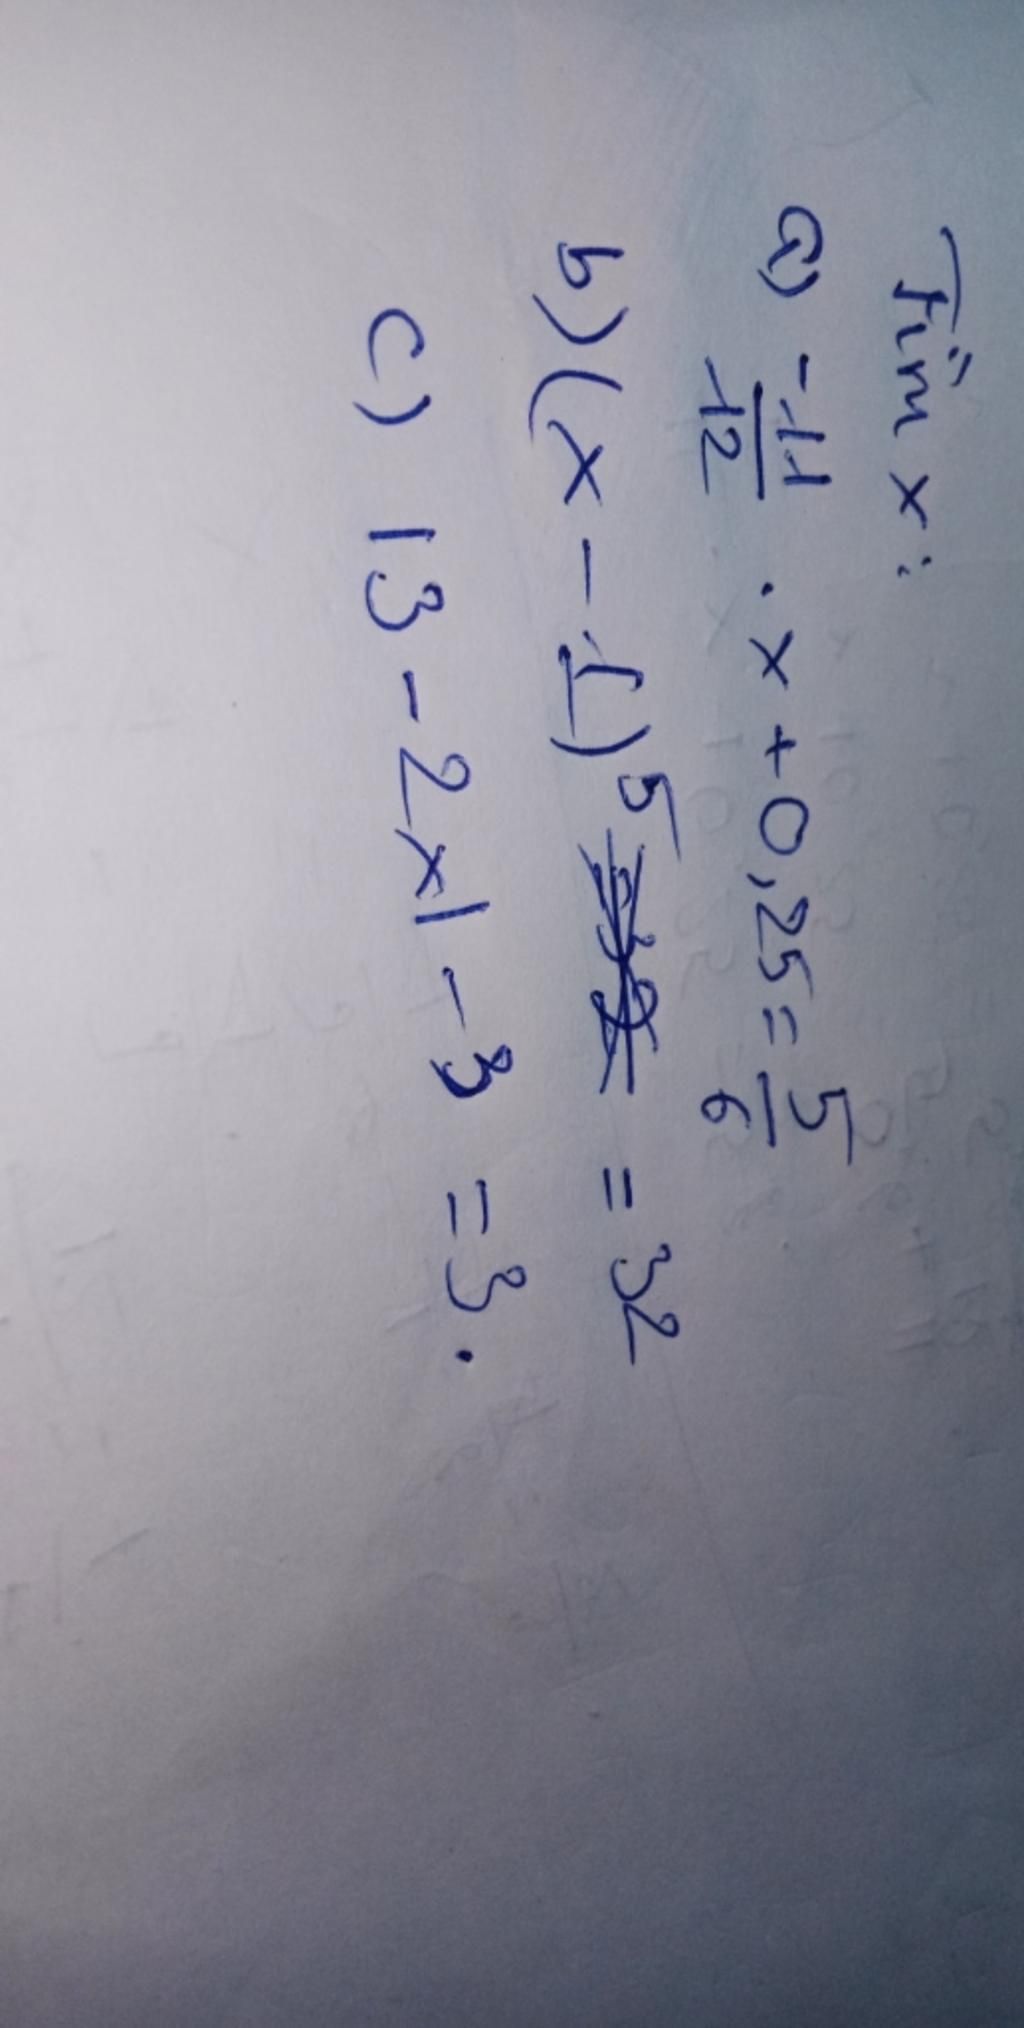 Tìm x:
a) -11/12 . x + 0,25 = 5/6
b) (x - 1)^5 = 32
c) |3 - 2x| - 3 = 3.